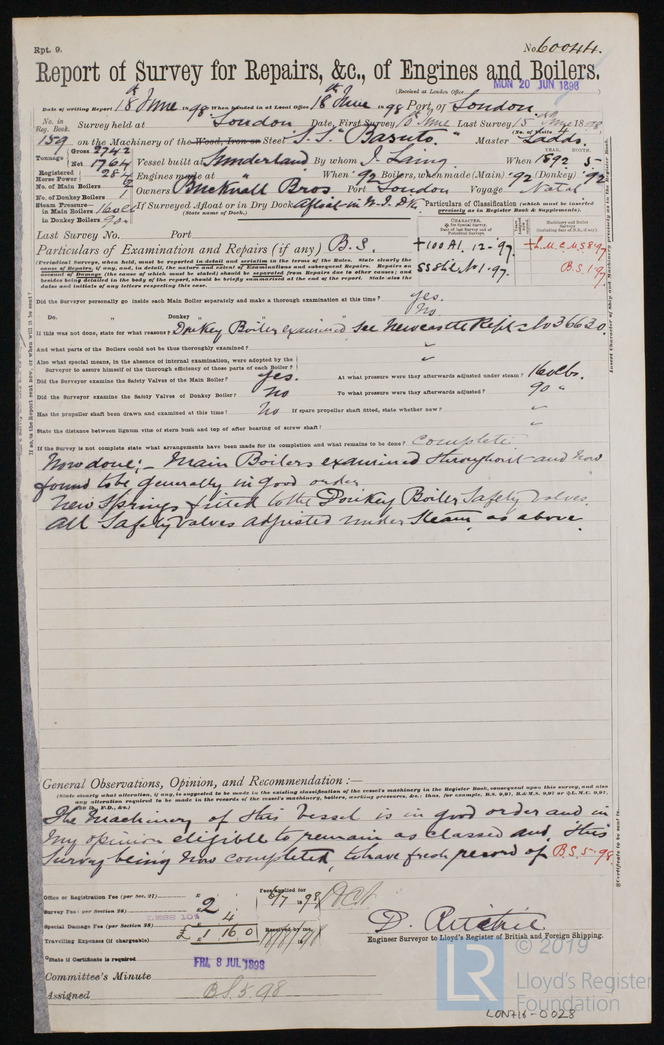 Rpt. 9.
No. 60044.
Report of Survey for Repairs, &c., of Engines and Boilers.
(Received at London Office) MON 20 JUN 1898
Date of writing Report 18th June 1898 When handed in at Local Office 18th June 1898 Port of London
No. in Reg. Book. Survey held at London Date, First Survey June Last Survey 15 June 1898
(No. of Visits 4)
159 on the Machinery of the Wood, Iron or Steel S.S. "Basuto." Master Ladds.
Tonnage Gross 2742 Net 1764 Vessel built at Sunderland By whom J. Laing When 1892 5
YEAR. MONTH.
Registered Horse Power 287 Engines made at " When '92 Boilers, when made (Main) '92 (Donkey) '92
No. of Main Boilers 2 Owners Bucknall Bros Port London Voyage Natal
No. of Donkey Boilers 1
Steam Pressure in Main Boilers 160 lb If Surveyed Afloat or in Dry Dock Afloat in
in Donkey Boilers 90 " (State name of Dock.)
Particulars of Classification (which must be inserted precisely as in Register Book & Supplements).
Last Survey No. Port
Particulars of Examination and Repairs (if any) B.S.
+100A1. 12-97
SS Shl No 1-97.
+L.M.C. M.S. 8.97
B.S. 1.97
Did the Surveyor personally go inside each Main Boiler separately and make a thorough examination at this time? yes.
Do. " Donkey " " " No
If this was not done, state for what reasons? Donkey Boiler examined see Newcastle Rept No 36630.
And what parts of the Boilers could not be thoroughly examined? "
Also what special means, in the absence of internal examination, were adopted by the
Surveyor to assure himself of the thorough efficiency of those parts of each Boiler? "
Did the Surveyor examine the Safety Valves of the Main Boiler? Yes. At what pressure were they afterwards adjusted under steam? 160 lbs.
Did the Surveyor examine the Safety Valves of Donkey Boiler? No To what pressure were they afterwards adjusted? 90 "
Has the propeller shaft been drawn and examined at this time? No If spare propeller shaft fitted, state whether new? "
State the distance between lignum vitæ of stern bush and top of after bearing of screw shaft? "
If the Survey is not complete state what arrangements have been made for its completion and what remains to be done? Complete
Now done:- Main Boilers examined throughout and now
found to be generally in good order
New Springs fitted to the Donkey Boiler Safety Valves.
All Safety Valves adjusted under Steam, as above.
General Observations, Opinion, and Recommendation:—
(State clearly what alteration, if any, is suggested to be made in the existing classification of the vessel's machinery in the Register Book, consequent upon this survey, and also
any alteration required to be made in the records of the vessel's machinery, boilers, working pressures, &c.; thus, for example, B.S. 9,97, B.&M.S. 9,97 or L.M.C. 9,97,
The Machinery of this Vessel is in good order and in
my opinion eligible to remain as classed and, this
Survey being now completed, to have fresh record of B.S. 5-98
Office or Registration Fee (per Sec. 27)
Fees applied for
Survey Fee (per Section 28) 2
LESS 10% 4
6/7 1898
Special Damage Fee (per Section 28) £ 1 16 0
Received by me,
Travelling Expenses (if chargeable)
D. Ritchie
Engineer Surveyor to Lloyd's Register of British and Foreign Shipping.
State if Certificate is required
FRI. 8 JUL 1898
Committee's Minute
Assigned B.S. 5.98
LR
© 2019
Lloyd's Register
Foundation
LON716-0028